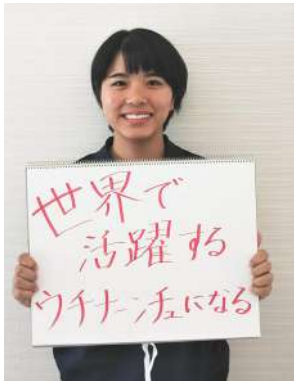 世界で
活躍する
ウチナーンチュになる